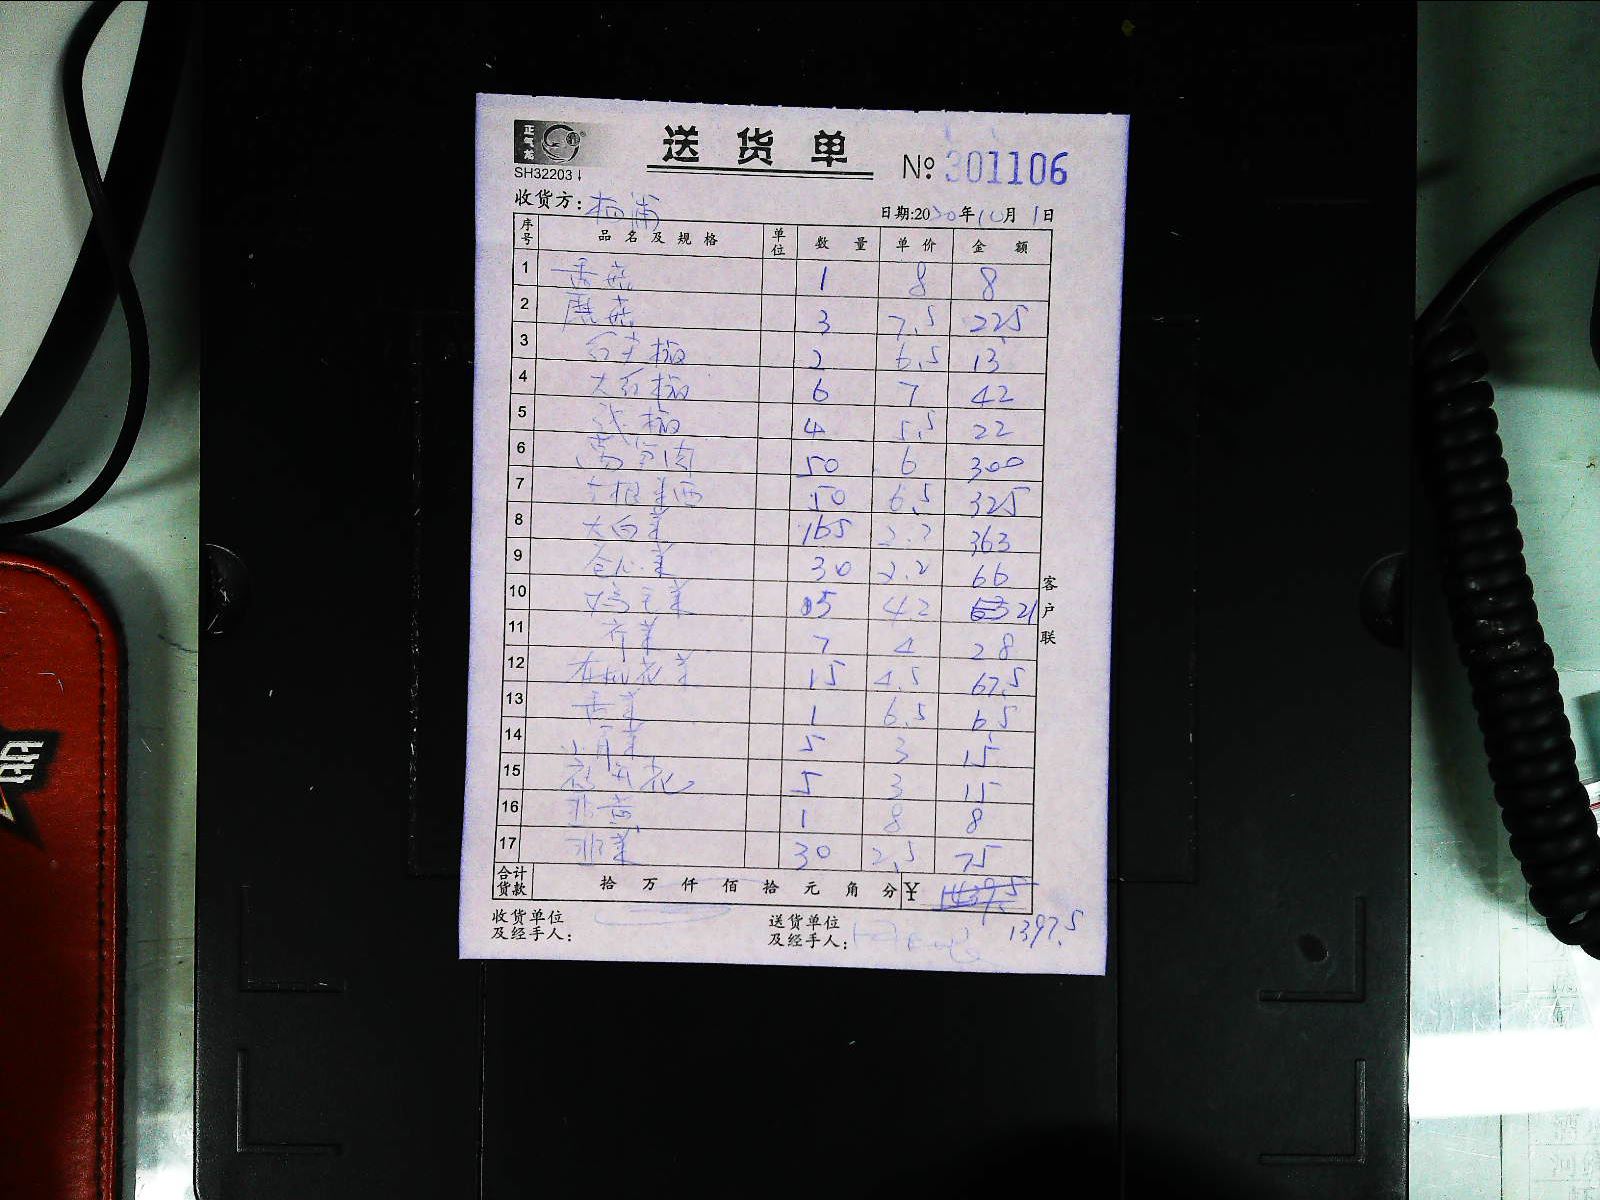 正气龙
送货单
№ 301106
SH32203
收货方: 杨浦
日期:2030年10月1日
序号 品名及规格 单位 数量 单价 金额
1 香菇 1 8 8
2 蘑菇 3 7.5 225
3 红尖椒 2 6.5 13
4 大红椒 6 7 42
5 椒 4 5.5 22
6 莴笋肉 50 6 300
7 50 6.5 325
8 大白菜 165 2.2 363
9 卷心菜 30 2.2 66
10 鸡毛菜 5 4.2 21
11 芹菜 7 4 28
12 有机花菜 15 4.5 67.5
13 香菜 1 6.5 6.5
14 小青菜 5 3 15
15 花 5 3 15
16 韭黄 1 8 8
17 韭菜 30 2.5 75
合计货款 拾 万 仟 佰 拾 元 角 分 ¥ 1439.5
1397.5
收货单位及经手人:
送货单位及经手人:
客户联